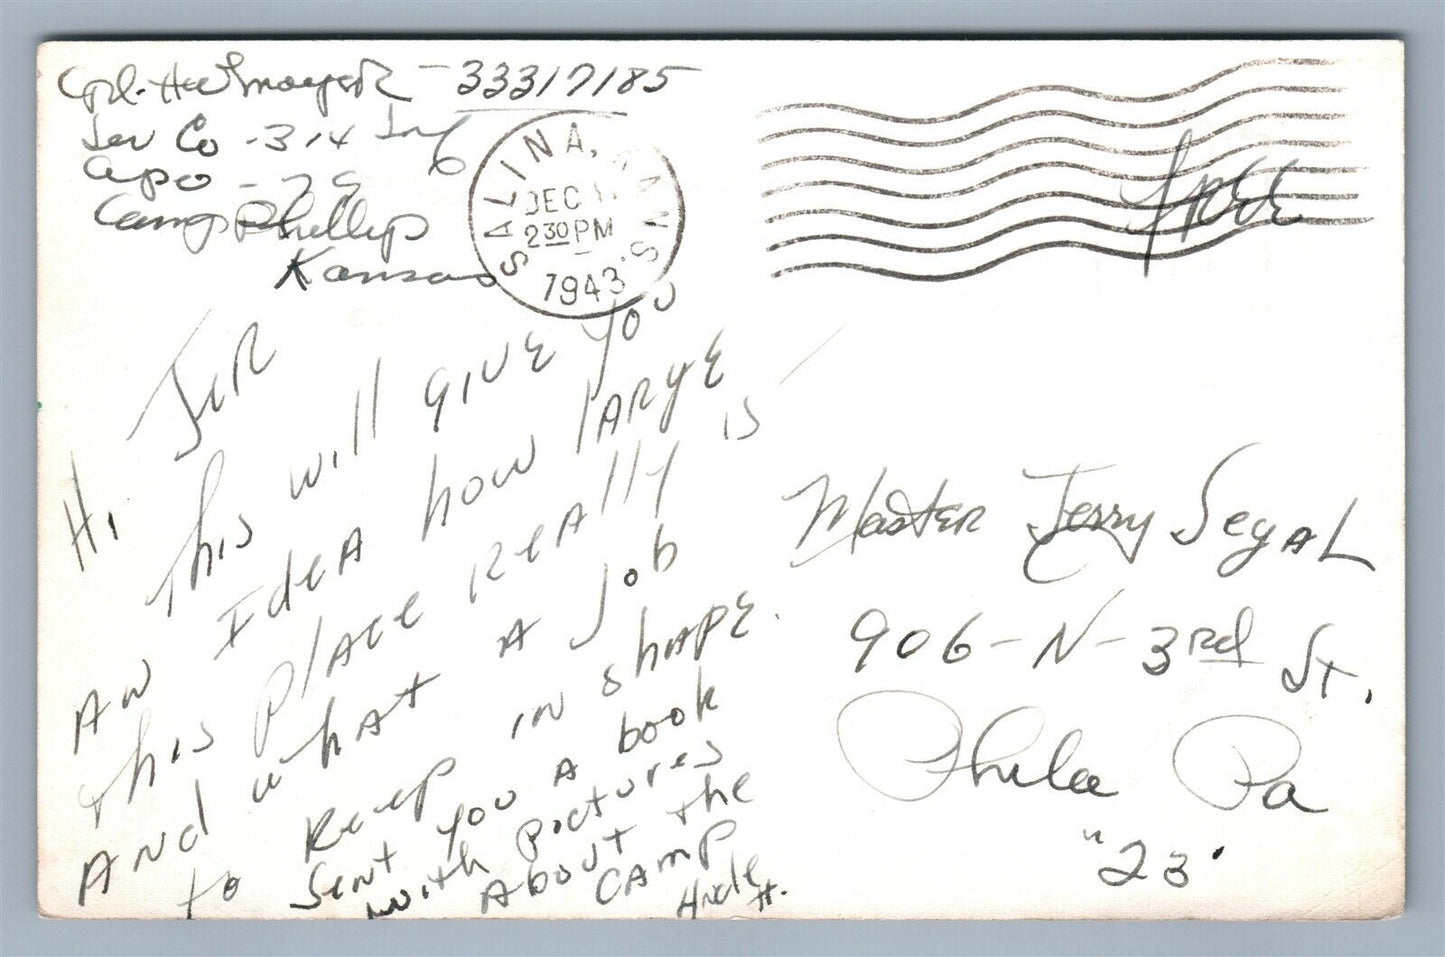 Cpl. - 33317185
Ser Co - 314 Inf
APO - 79
Camp Phillips
Kansas
SALINA, KANS.
DEC
2 30 PM
1943
Free
Hi Jer
This will give you
an Idea how large
this place really is
And what a job
to keep in shape.
Sent you a book
with pictures
About the
CAMP
H.
Master Jerry Segal
906 - N - 3rd St.
Phila Pa
"23"